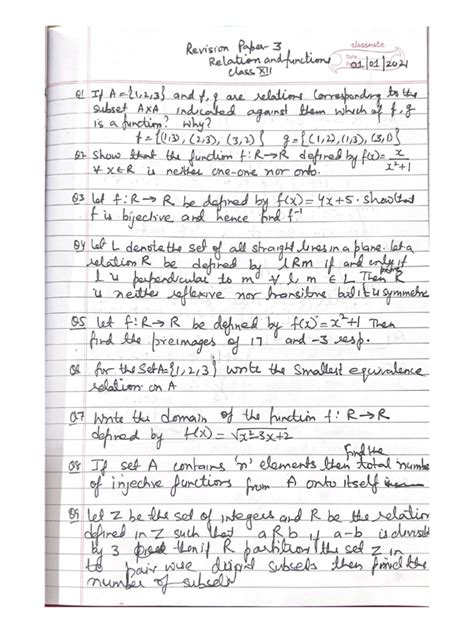 Revision Paper-3
Relation and functions
Class XII
classmate
Date
01/01/2021
Q1 If A={1,2,3} and f, g are relations corresponding to the
subset AxA indicated against them which of f, g
is a function? Why?
f = {(1,3), (2,3), (3,2)} g = {(1,2), (1,3), (3,1)}
Q2 Show that the function f:R→R defined by f(x)= x/x²+1
∀ x∈R is neither one-one nor onto.
Q3 Let f:R→R be defined by f(x)=4x+5. Show that
f is bijective and hence find f⁻¹
Q4 Let L denote the set of all straight lines in a plane. Let a
relation R be defined by lRm if and only if
l is perpendicular to m ∀ l, m ∈ L Then R
is neither reflexive nor transitive but it is symmetric
Q5 Let f:R→R be defined by f(x)=x²+1 Then
find the preimages of 17 and -3 resp.
Q6 for the Set A={1,2,3} write the Smallest equivalence
relation on A
Q7 Write the domain of the function f: R→R
defined by f(x) = √x²-3x+2
find the
Q8 If set A contains 'n' elements then total number
of injective functions from A onto itself
Q9 Let Z be the set of integers and R be the relation
defined in Z such that aRb if a-b is divisible
by 3 then if R partition the set Z in
to pair wise disjoint subsets then find the
number of subsets